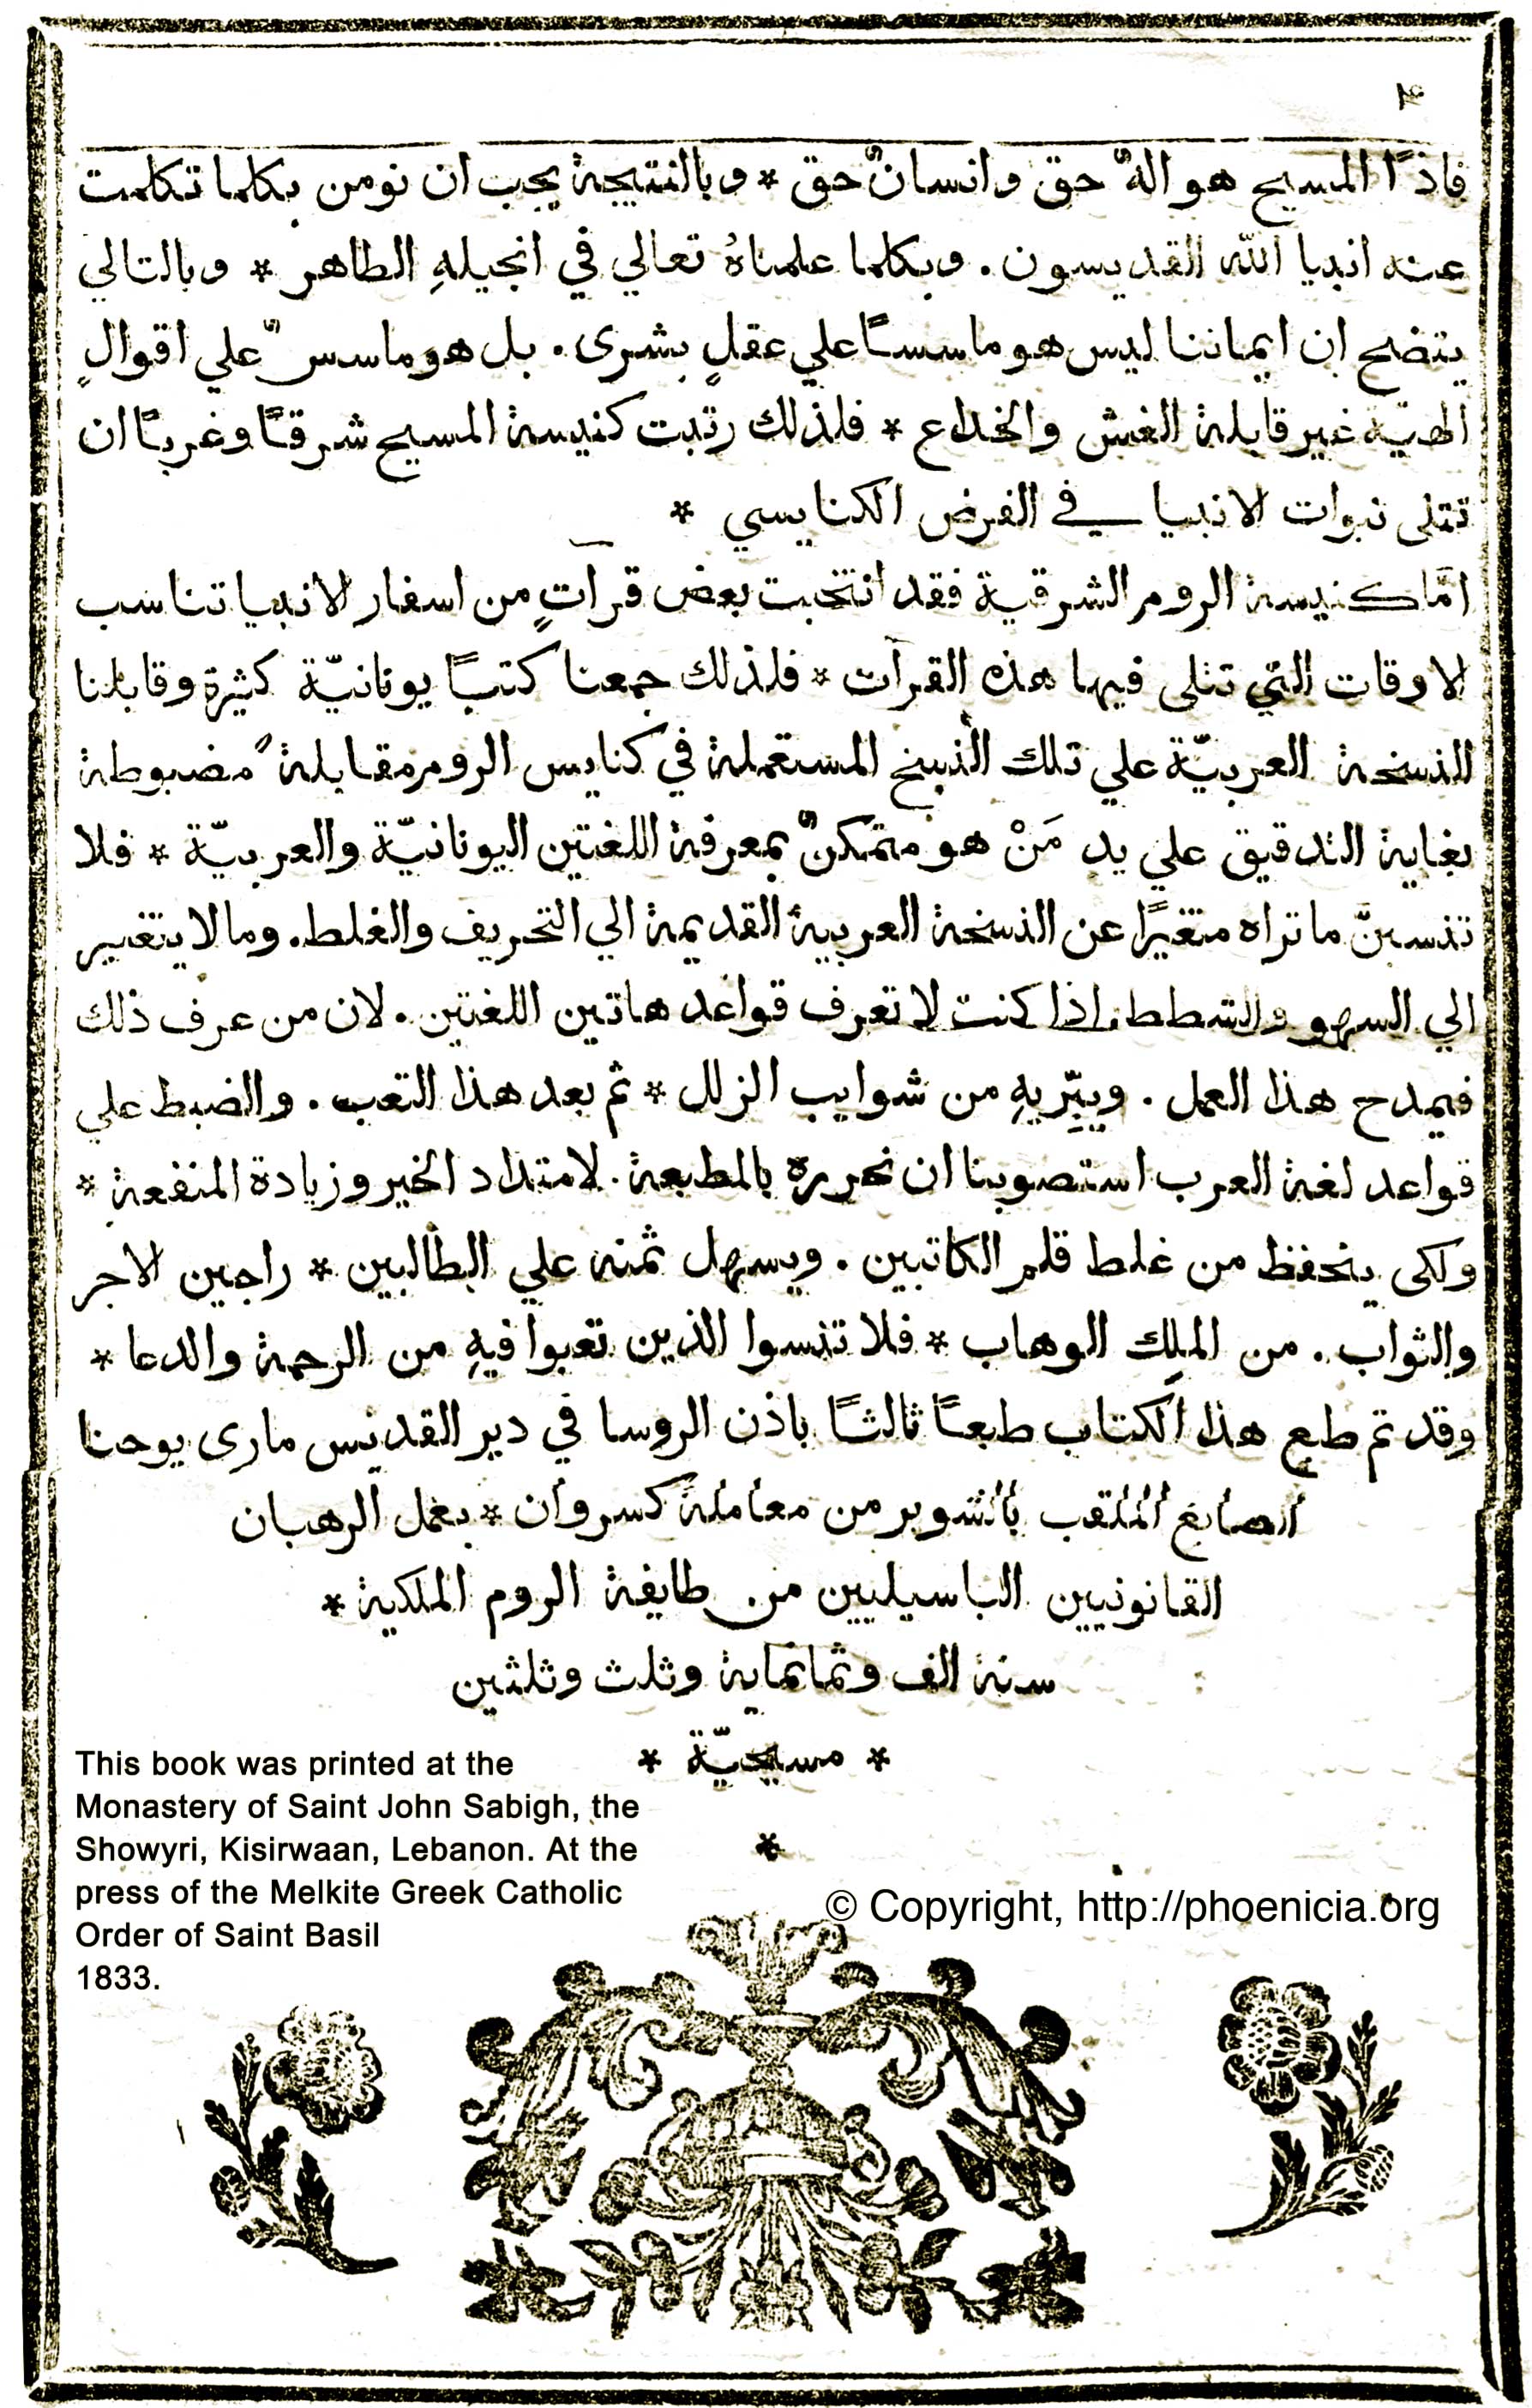 ٤
فاذًا المسيح هو الهٌ حق وانسانٌ حق * وبالنتيجة يجب ان نومن بكلما تكلمت
عنه انبيا الله القديسون. وبكلما علمناهُ تعالي في انجيلهِ الطاهر * وبالتالي
يتضح ان ايماننا ليس هو ماسسًا علي عقلٍ بشرى. بل هو ماسسٌ علي اقوالٍ
الهيّة غير قابلة الغش والخداع * فلذلك رتبت كنيسة المسيح شرقًا وغربًا ان
تتلى نبوات الانبيا في الفرض الكنايسي *
امَّا كنيسة الروم الشرقية فقد انتخبت بعض قراتٍ من اسفار الانبيا تناسب
الاوقات التي تتلى فيها هذه القرآت * فلذلك جمعنا كتبًا يونانيّة كثيرة وقابلنا
النسخة العربيّة علي تلك النسخ المستعملة في كنايس الروم مقابلةً مضبوطة
بغاية التدقيق علي يد مَنْ هو متمكنٌ بمعرفة اللغتين اليونانيّة والعربيّة * فلا
تنسبنَّ ما تراه متغيرًا عن النسخة العربية القديمة الي التحريف والغلط. وما لا يتغير
الي السهو والشطط. اذا كنت لا تعرف قواعد هاتين اللغتين. لان من عرف ذلك
فيمدح هذا العمل. ويبرّيهِ من شوايب الزلل * ثم بعد هذا التعب. والضبط علي
قواعد لغة العرب استصوبنا ان نحرره بالمطبعة. لامتداد الخير وزيادة المنفعة *
ولكى يحفظ من غلط قلم الكاتبين. ويسهل ثمنه علي الطالبين * راجين الاجر
والثواب. من الملِك الوهاب * فلا تنسوا الذين تعبوا فيهِ من الرحمة والدعا *
وقد تم طبع هذا الكتاب طبعًا ثالثًا باذن الروسا في دير القديس مارى يوحنا
الصايغ الملقب بالشوير من معاملة كسروان * بعمل الرهبان
القانونيين الباسيليين من طايفة الروم الملكية *
سنة الف وثمانماية وثلث وثلثين
* مسيحيّة *
*
This book was printed at the
Monastery of Saint John Sabigh, the
Showyri, Kisirwaan, Lebanon. At the
press of the Melkite Greek Catholic
Order of Saint Basil
1833.
© Copyright, http://phoenicia.org